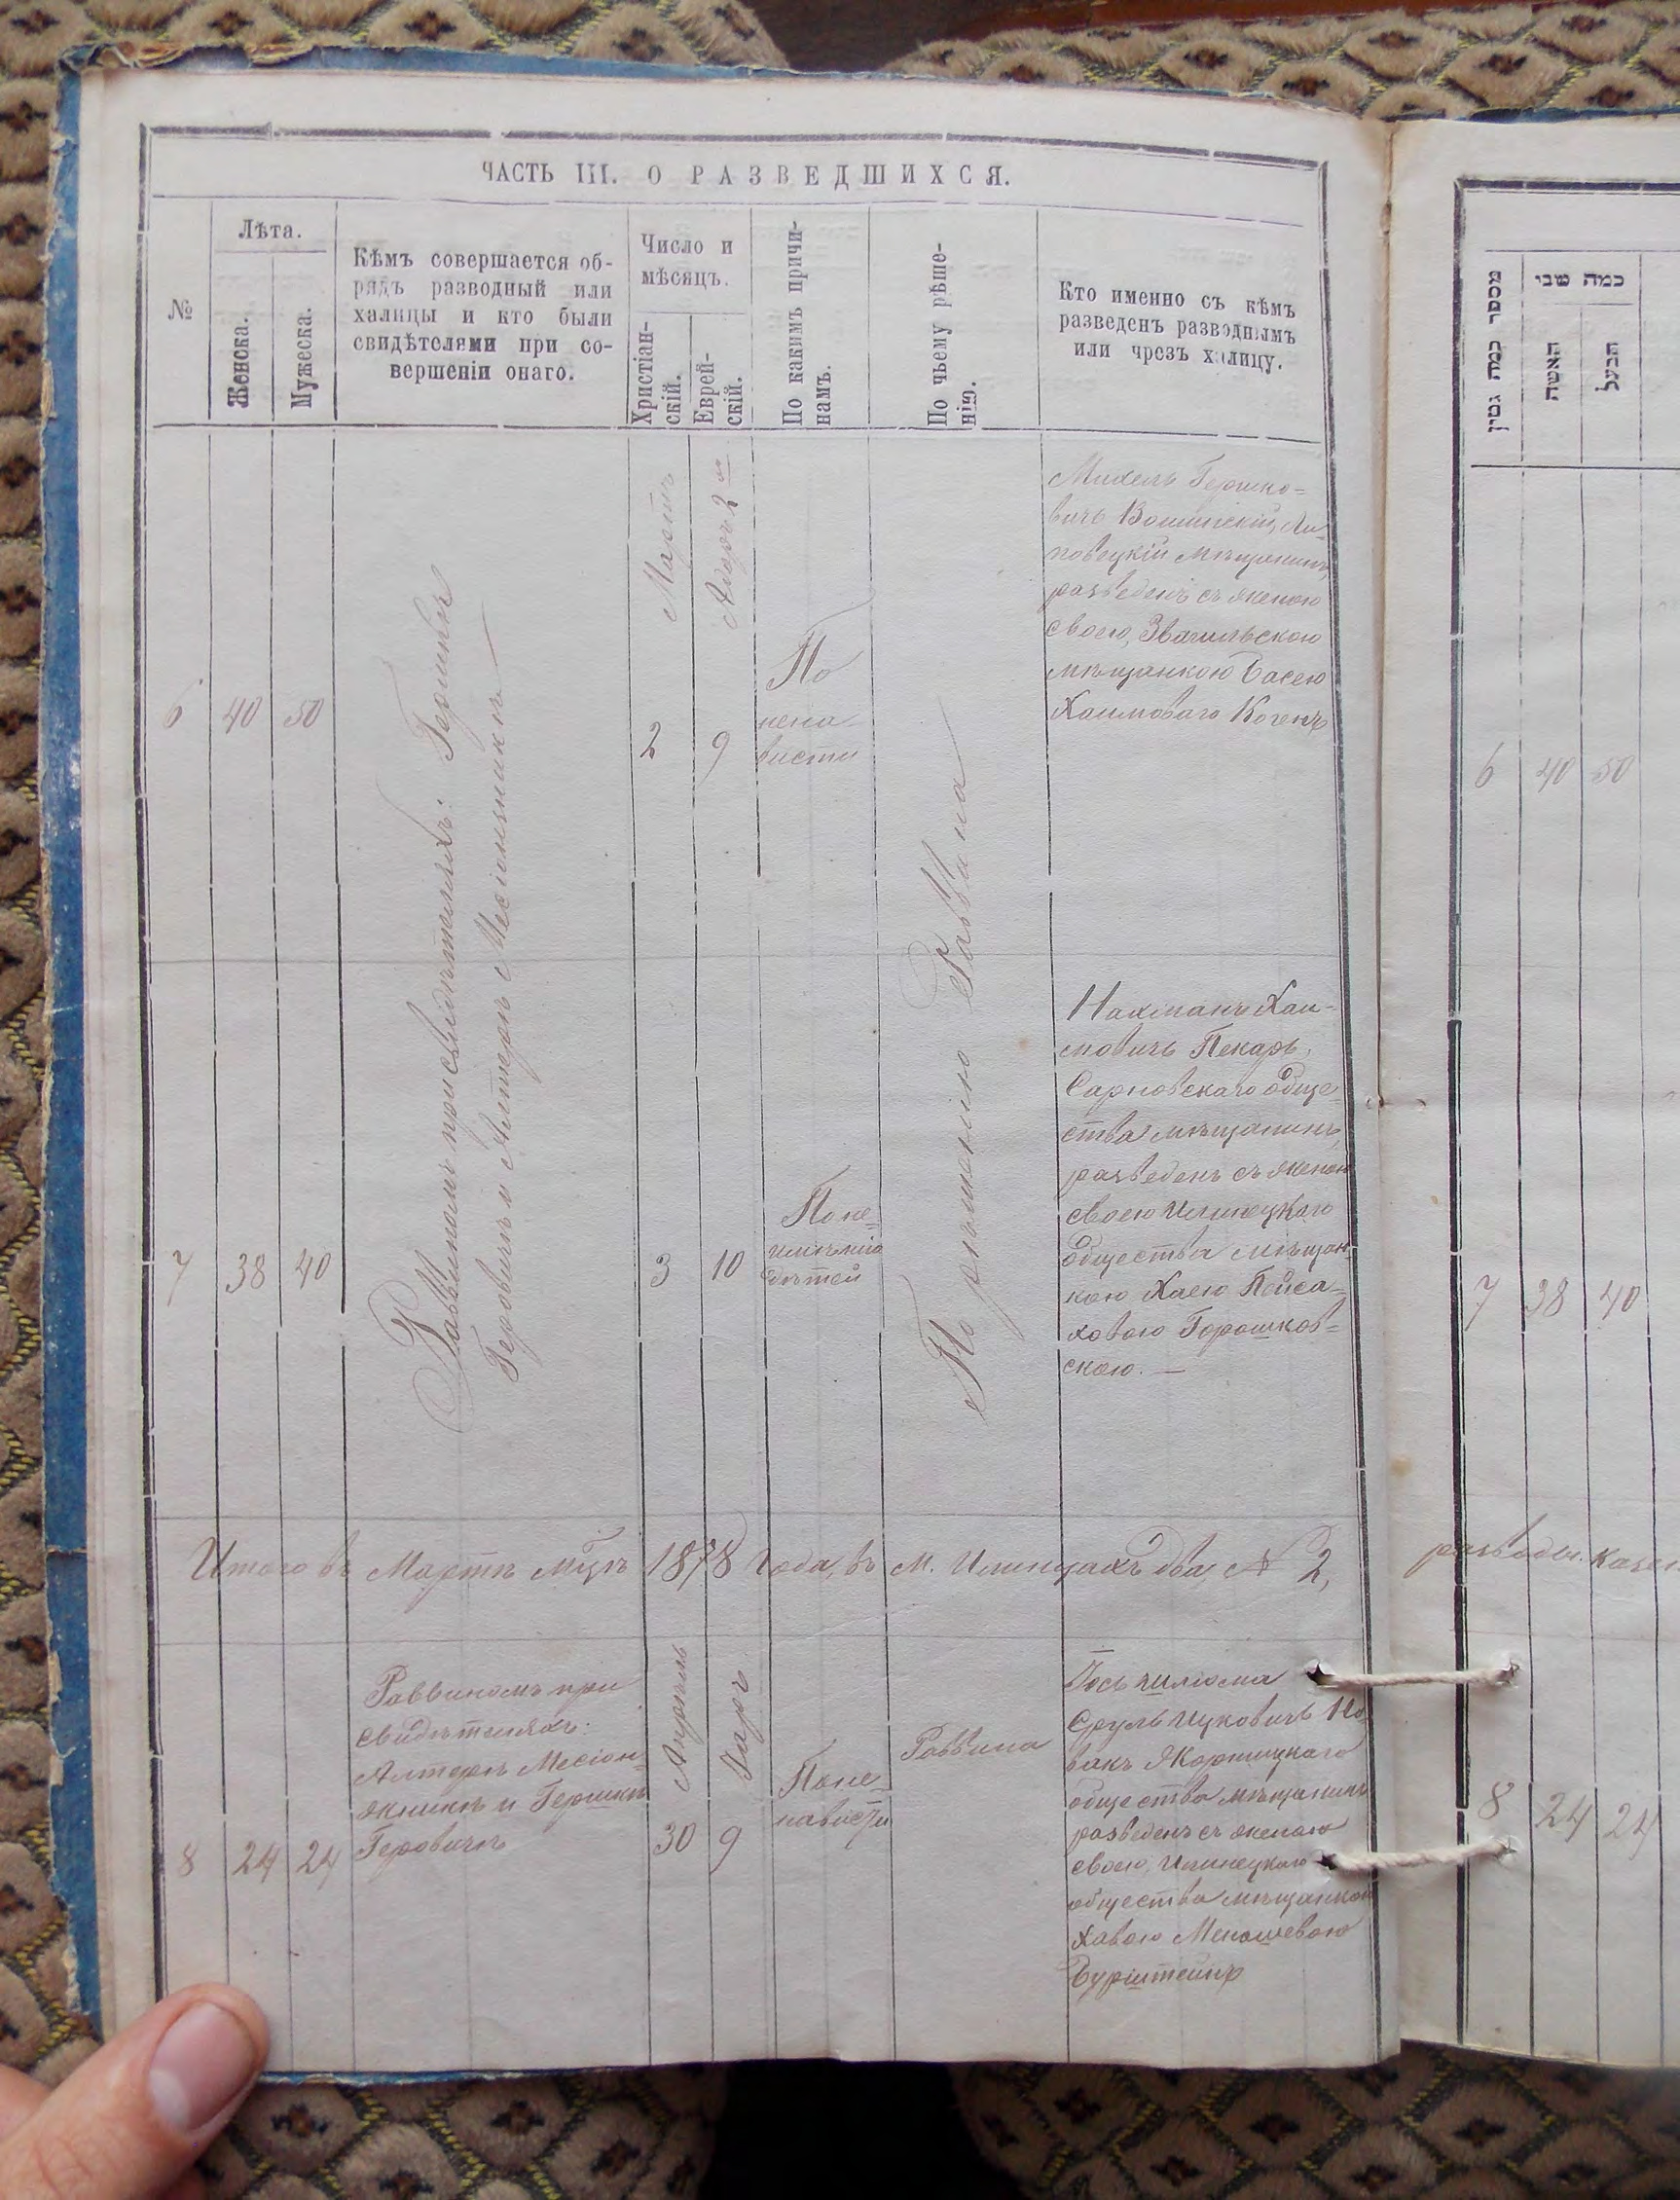 ЧАСТЬ III. О РАЗВЕДШИХСЯ.
№
Лѣта.
Женска.
Мужеска.
Кѣмъ совершается об-
рядъ разводный или
халицы и кто были
свидѣтелями при со-
вершеніи онаго.
Число и
мѣсяцъ.
Христіан-
скій.
Еврей-
скій.
По какимъ причи-
намъ.
По чьему рѣше-
нію.
Кто именно съ кѣмъ
разведенъ разводнымъ
или чрезъ халицу.
6
40
50
Раввиномъ при свидѣтеляхъ: Гершкѣ
Геровичѣ и Алтерѣ Месіонжникѣ
Мартъ
2
Адаръ 2й
9
По
нена
висти
По рѣшенію Раввина
Михель Гершко=
вичъ Вошинскій, Ли-
повецкій мѣщанинъ,
разведенъ съ женою
своею, Звагильскою
мѣщанкою Басею
Хаимоваго Когенъ
7
38
40
3
10
По не-
имѣнію
дѣтей
Нахманъ Хаи-
мовичъ Пекарь,
Сарновскаго обще-
ства мѣщанинъ,
разведенъ съ женою
своею Илинецкаго
общества мѣщан-
кою Хаею Пейса-
ховою Горошков=
скою. —
Итого въ Мартѣ мцѣ 1878 года, въ М. Илинцахъ два, № 2,
8
24
24
Раввиномъ при
свидѣтеляхъ:
Алтерѣ Месіон-
жникѣ и Гершкѣ
Геровичѣ
Апрѣль
30
Іаръ
9
По не-
нависти
Раввина
Іось шлюма
Сруль Ицковичъ Но
вакъ
общества мѣщанинъ
разведенъ съ женою
своею, Илинецкаго
общества мѣщанкою
Хавою Менашевою
Бурштейнъ
מספר כמה גטין
כמה שני
האשה
הבעל
6
40
50
7
38
40
разводы.
8
24
24